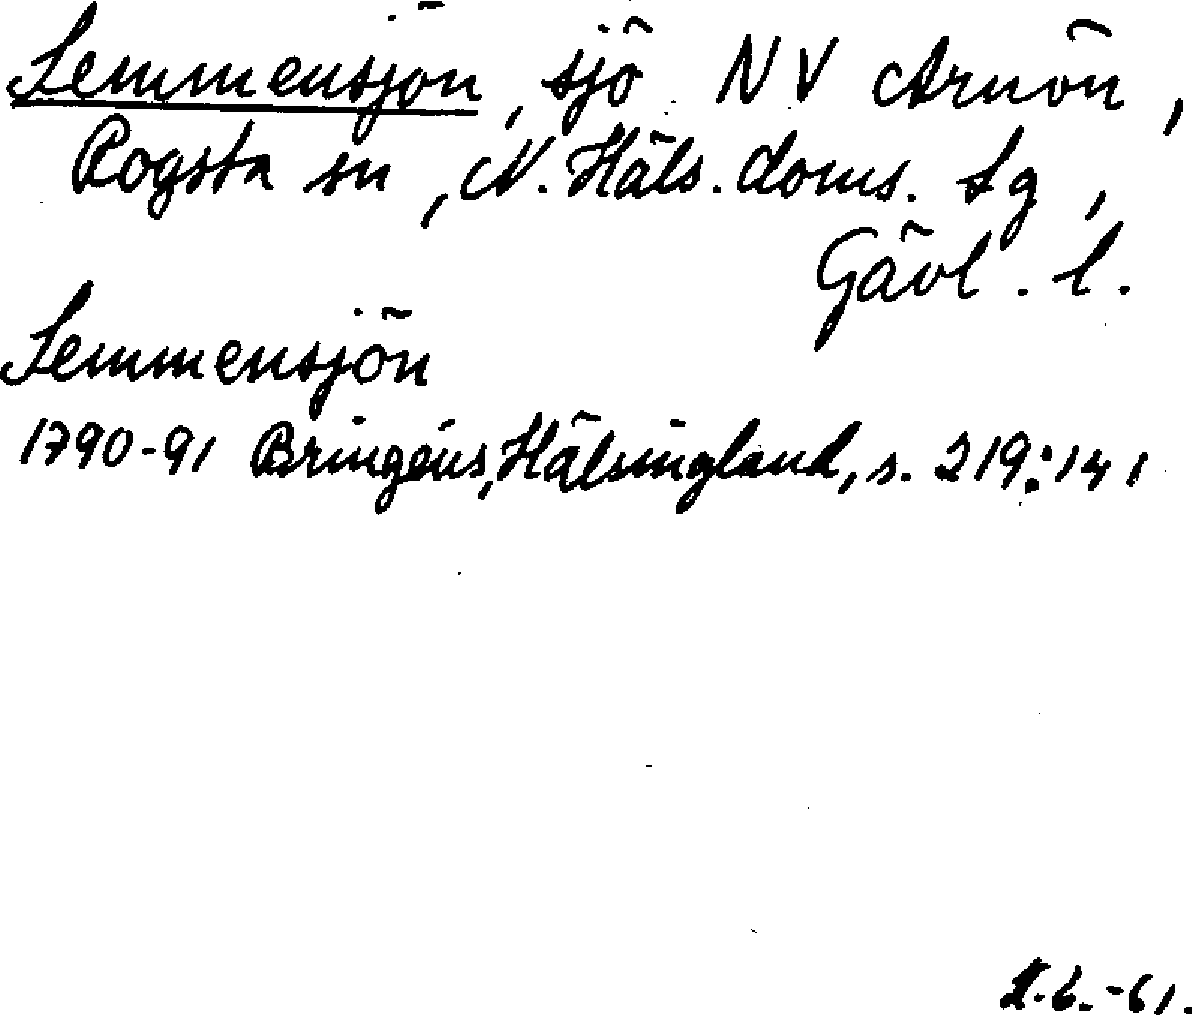 Lemmensjön, sjö NV Arnön,
Rogsta sn, N. Häls. doms. lg,
Gävl. l.
Lemmensjön
1790-91 Bringéus, Hälsingland, s. 219:141
-61.